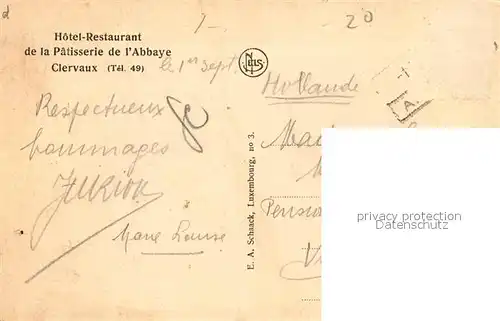 Hôtel-Restaurant
de la Pâtisserie de l'Abbaye
Clervaux (Tél. 49)
le 1er Sept.
NELS
20
Hollande
A.
Respectueux
hommages
Marie Louise
E. A. Schaack, Luxembourg, no 3.
Pension
privacy protection
Datenschutz